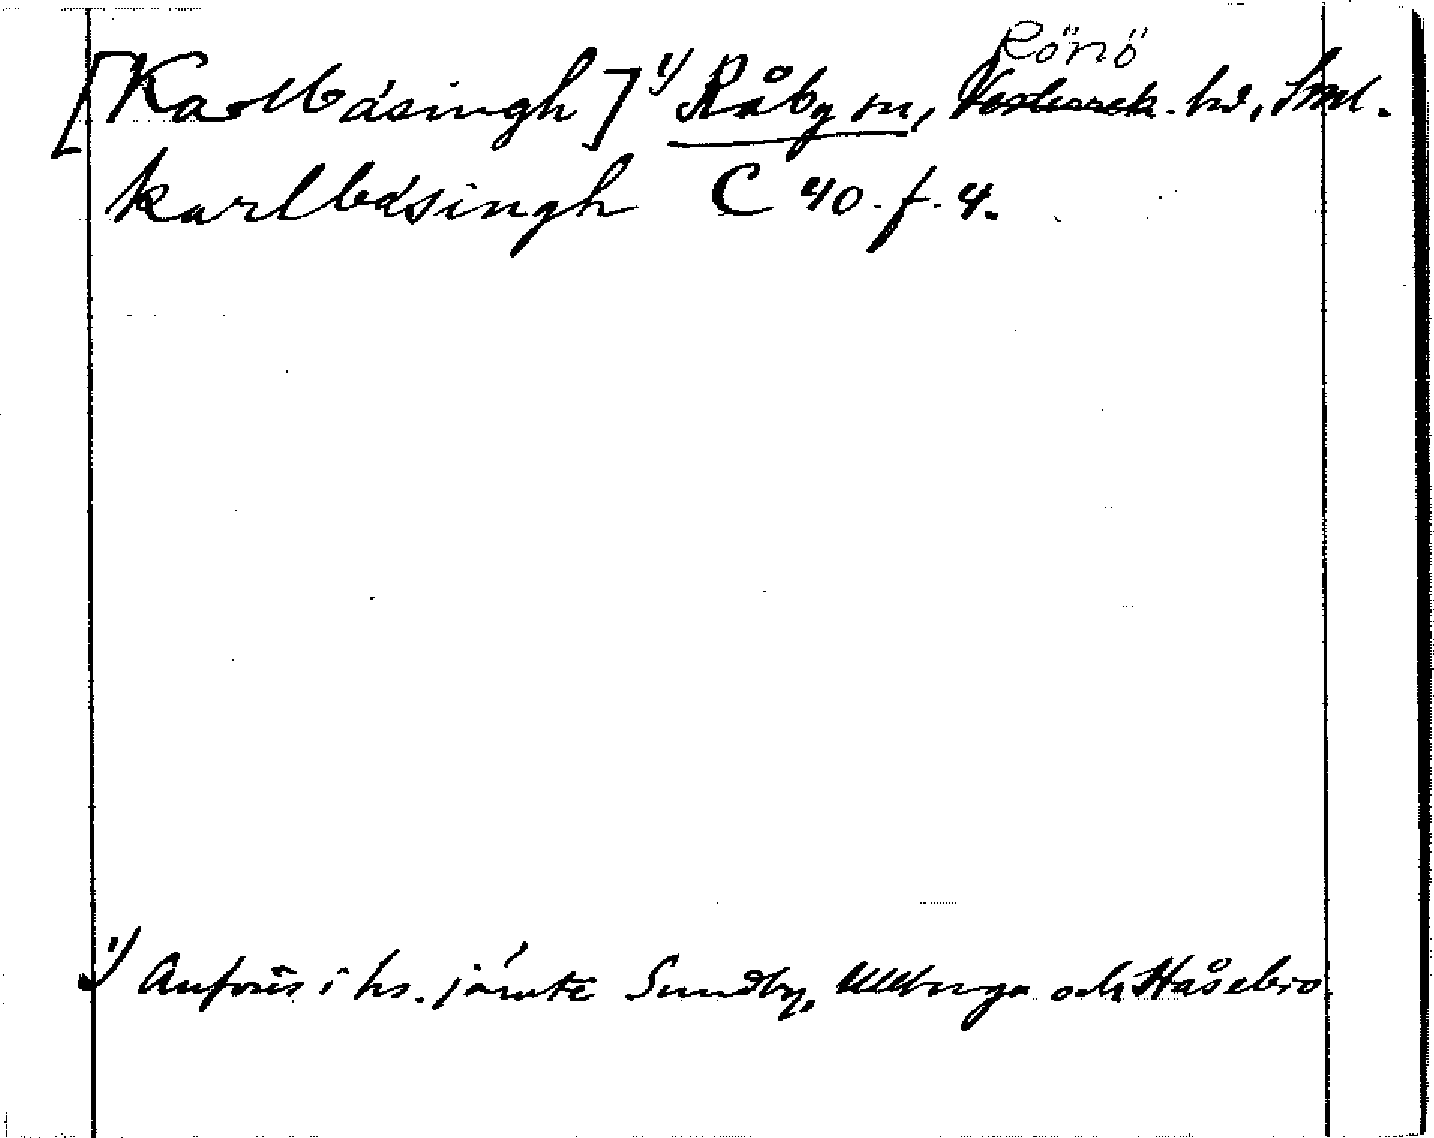 Rönö
[Karlbásingh]¹⁾ Råby sn, Vesterrek. hd, Sml.
karlbásingh C 40. f. 4.
¹⁾ Anföres i hs. jämte Sundby, Ullunga och Håsebro